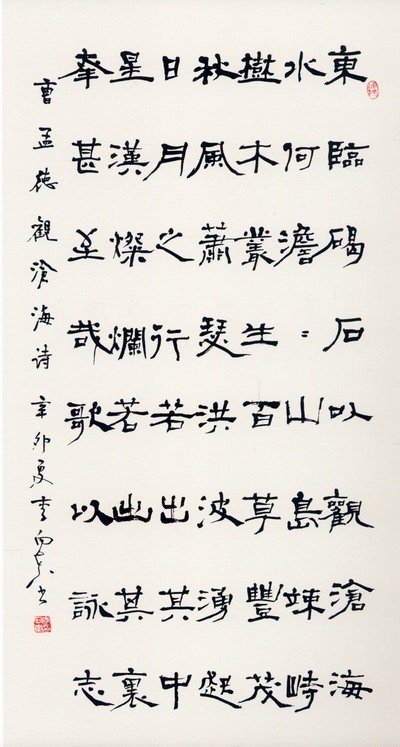 東臨碣石以觀滄海
水何澹〻山島竦峙
樹木叢生百草豐茂
秋風蕭瑟洪波湧起
日月之行若出其中
星漢燦爛若出其裏
幸甚至哉歌以詠志
曹孟德觀滄海诗辛卯夏李向